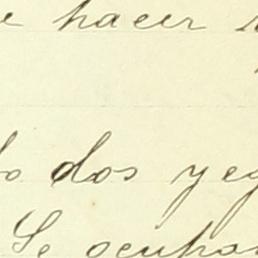 e hacer
do dos yeg
Se ocupa